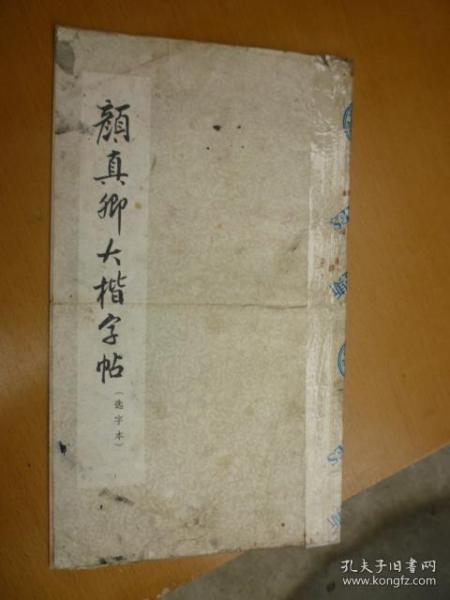 顔真卿大楷字帖
(选字本)
孔夫子旧书网
www.kongfz.com